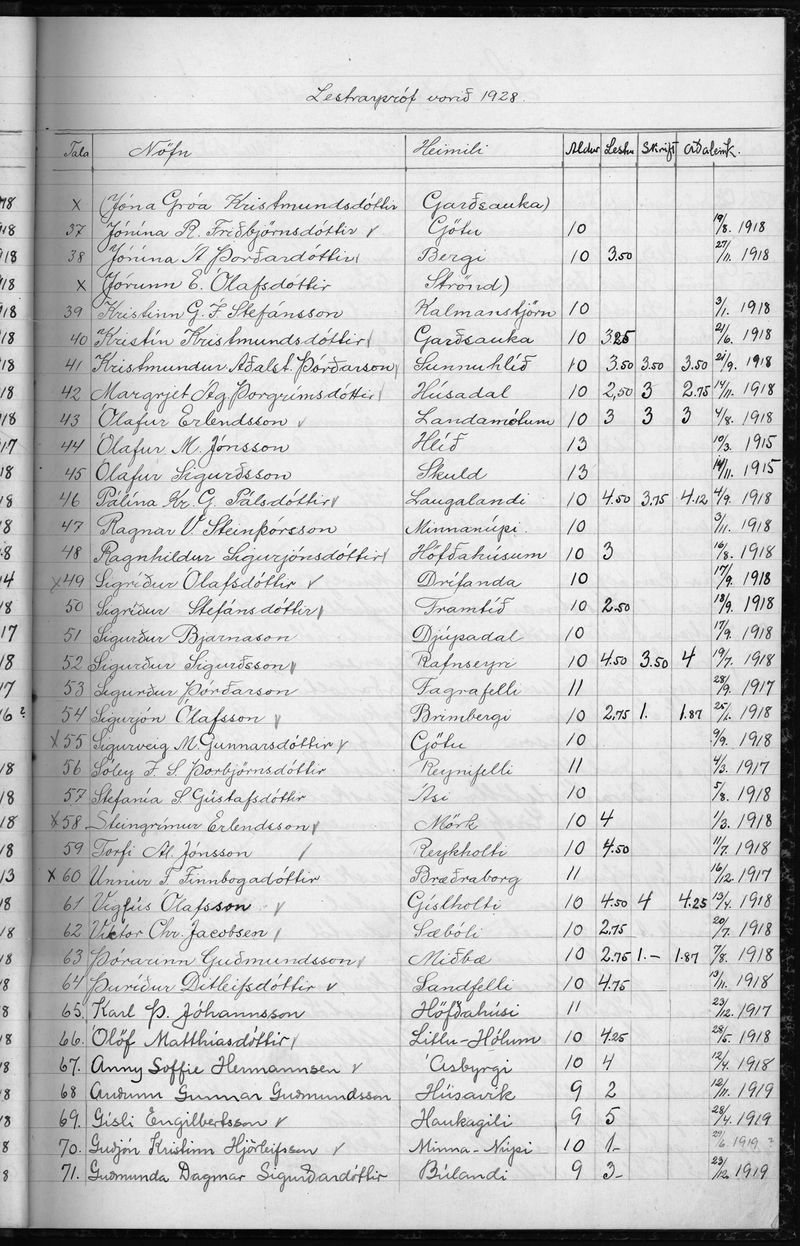 Lestrarpróf vorið 1928.
Tala Nöfn Heimili Aldur Lestur Skrift Aðaleink.
x (Jóna Gróa Kristmundsdóttir Garðsauka)
37 Jónína R. Friðbjörnsdóttir v Götu 10 19/8. 1918
38 Jónína A Þorðardóttir Bergi 10 3.50 27/11. 1918
x Jórunn E. Ólafsdóttir Strönd)
39 Kristinn G. F. Stefánsson Kalmanstjörn 10 3/1. 1918
40 Kristín Kristmundsdóttir Garðsauka 10 3.25 21/6. 1918
41 Kristmundur Aðalst. Þórðarson Sunnuhlíð 10 3.50 3.50 3.50 21/9. 1918
42 Margrjet Ag. Þorgrímsdóttir Húsadal 10 2,50 3 2.75 14/11. 1918
43 Ólafur Erlendsson v Landamótum 10 3 3 3 4/8. 1918
44 Ólafur M. Jónsson Hlíð 13 10/3. 1915
45 Ólafur Sigurðsson Skuld 13 14/11. 1915
46 Pálína Kr. G. Pálsdóttir v Laugalandi 10 4.50 3.75 4.12 4/9. 1918
47 Ragnar V. Steinþórsson Minnanúpi. 10 3/11. 1918
48 Ragnhildur Sigurjónsdóttir Höfðahúsum 10 3 16/8. 1918
x 49 Sigríður Ólafsdóttir v Drífanda 10 17/9. 1918
50 Sigríður Stefánsdóttir Framtíð 10 2.50 18/9. 1918
51 Sigurður Bjarnason Djúpadal 10 17/9. 1918
52 Sigurður Sigurðsson v Rafnseyri 10 4.50 3.50 4 19/7. 1918
53 Sigurður Þórðarson Fagrafelli 11 28/9. 1917
54 Sigurjón Ólafsson v Brimbergi 10 2.75 1. 1.87 25/1. 1918
x 55 Sigurveig M. Gunnarsdóttir v Götu 10 9/9. 1918
56 Sóley F. S. Þorbjörnsdóttir Reynifelli 11 4/3. 1917
57 Stefanía S. Gústafsdóttir Ási 10 5/8. 1918
x 58 Steingrímur Erlendsson v Mörk 10 4 1/3. 1918
59 Torfi Al. Jónsson / Reykholti 10 4.50 11/7 1918
x 60 Unnur T. Finnbogadóttir Bræðraborg 11 16/12. 1917
61 Vigfús Ólafsson v Gíslholti 10 4.50 4 4.25 13/4. 1918
62 Victor Chr. Jacobsen / Sæbóli 10 2.75 20/7. 1918
63 Þórarinn Guðmundsson Miðbæ 10 2.75 1.- 1.87 7/8. 1918
64 Þuríður Ditleifsdóttir v Sandfelli 10 4.75 13/11. 1918
65. Karl Þ. Jóhannsson Höfðahúsi 11 23/12. 1917
66. Ólöf Matthíasdóttir / Litlu-Hólum 10 4.25 28/5. 1918
67. Anny Soffie Hermannsen v Ásbyrgi 10 4 12/4. 1918
68 Auðunn Gunnar Guðmundsson Húsavík 9 2 12/11. 1919
69. Gísli Engilbertsson v Haukagili 9 5 28/4. 1919
70. Guðjón Kristinn Hjörleifsson v Minna-Núpi 10 1- 29/6. 1919?
71. Guðmunda Dagmar Sigurðardóttir Búlandi 9 3- 23/12. 1919